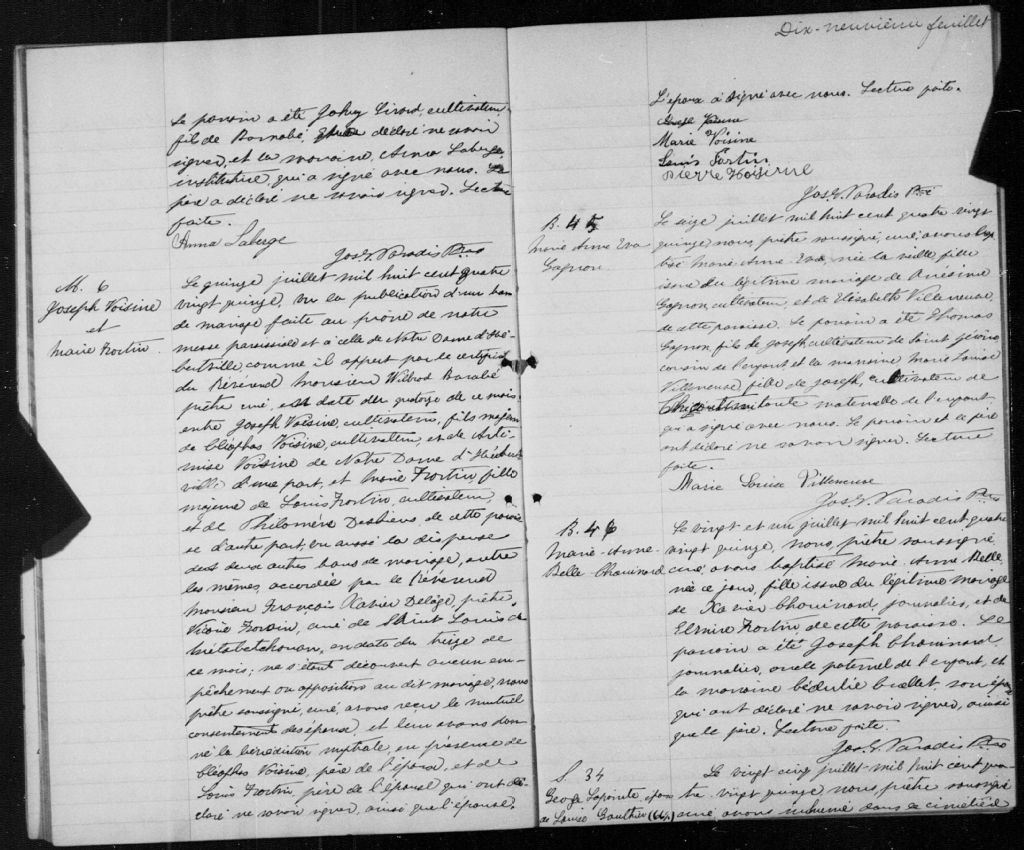 le parrain a été Johny Girard, cultivateur,
fils de Barnabé, déclaré ne savoir
signer, et la marraine, Anna Laberge,
institutrice, qui a signé avec nous. Le
père a déclaré ne savoir signer. Lecture
faite.
Anna Laberge
Jos. G. Paradis Ptre
M. 6
Joseph Voisine
et
Marie Fortin.
Le quinze juillet mil huit cent quatre
vingt quinze, vu la publication d'un ban
de mariage faite au prône de notre
messe paroissiale et à celle de Notre Dame d'Hé-
bertville, comme il appert par le certificat
du Révérend Monsieur Wilbrod Barabé
prêtre curé, en date du quatorze de ce mois,
entre Joseph Voisine, cultivateur, fils majeur
de Cléophas Voisine, cultivateur, et de Arté-
mise Voisine de Notre Dame d'Hébert-
ville d'une part, et Marie Fortin, fille
majeure de Louis Fortin, cultivateur,
et de Philomène Desbiens de cette parois-
se d'autre part; vu aussi la dispense
des deux autres bans de mariage, entre
les mêmes, accordée par le Révérend
Monsieur François Xavier Delâge, prêtre,
Vicaire Forain, curé de Saint Louis de
Métabetchouan, en date du treize de
ce mois; ne s'étant découvert aucun em-
pêchement ou opposition au dit mariage, nous
prêtre soussigné, curé, avons reçu le mutuel
consentement des époux, et leur avons don-
né la bénédiction nuptiale, en présence de
Cléophas Voisine, père de l'époux, et de
Louis Fortin, père de l'épouse, qui ont dé-
claré ne savoir signer, ainsi que l'épouse.
Dix-neuvième feuillet
L'époux a signé avec nous. Lecture faite.
Joseph Voisine
Marie Voisine
Louis Fortin
Pierre Voisine
Jos. G. Paradis Ptre
B. 45
Marie Anne Eva
Gagnon
Le seize juillet mil huit cent quatre vingt
quinze, nous, prêtre soussigné, curé, avons bap-
tisé Marie Anne Eva, née la veille, fille
issue du légitime mariage de Onésime
Gagnon, cultivateur, et de Elisabeth Villeneuve,
de cette paroisse. Le parrain a été Thomas
Gagnon, fils de Joseph, cultivateur de Saint Jérôme,
cousin de l'enfant, et la marraine Marie Louise
Villeneuve, fille de Joseph, cultivateur de
tante maternelle de l'enfant,
qui a signé avec nous. Le parrain et le père
ont déclaré ne savoir signer. Lecture
faite.
Marie Louise Villeneuve
Jos. G. Paradis Ptre
B. 46
Marie-Anne-
Belle Chouinard
Le vingt et un juillet mil huit cent quatre
vingt quinze, nous, prêtre soussigné
curé, avons baptisé Marie-Anne-Belle,
née ce jour, fille issue du légitime mariage
de Xavier Chouinard, journalier, et de
Elmire Fortin de cette paroisse. Le
parrain a été Joseph Chouinard
journalier, oncle paternel de l'enfant, et
la marraine Cédulie Ouellet, son épouse
qui ont déclaré ne savoir signer, ainsi
que le père. Lecture faite.
Jos. G. Paradis Ptre
S. 34
George Lapointe époux
de Louise Gauthier (64)
Le vingt cinq juillet mil huit cent qua-
tre-vingt quinze nous, prêtre soussigné
curé, avons inhumé dans le cimetière